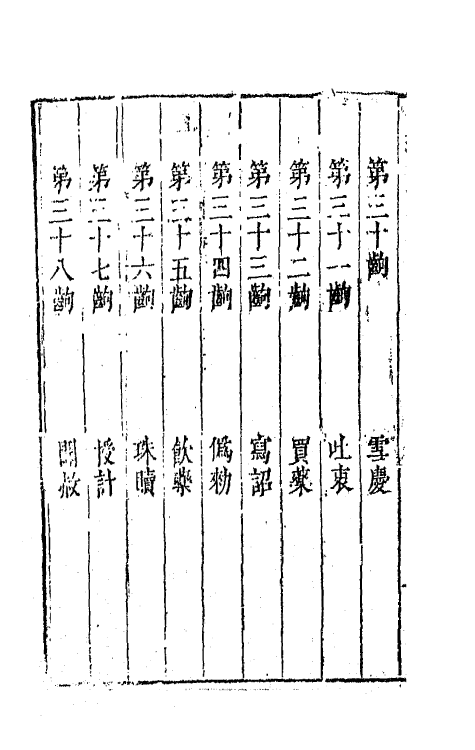 第三十齣 雪慶
第三十一齣 吐衷
第三十二齣 買藥
第三十三齣 寫詔
第三十四齣 偽勅
第三十五齣 飲藥
第三十六齣 珠贖
第三十七齣 授計
第三十八齣 鬧赦